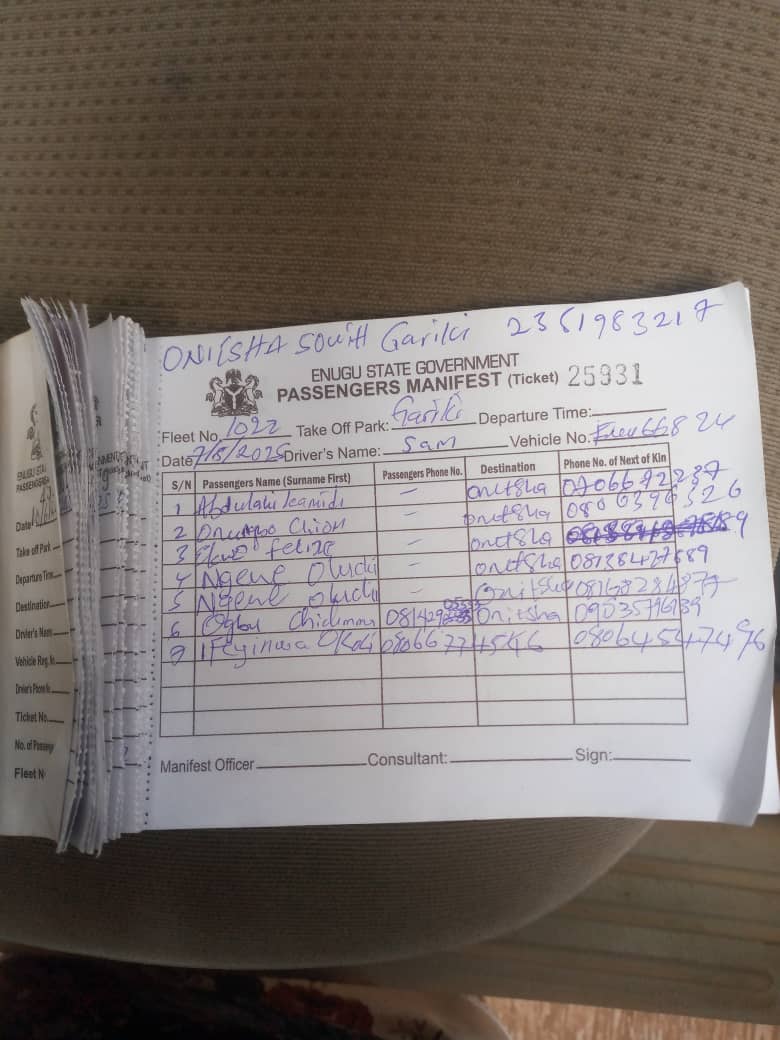 ONITSHA SOUTH Gariki 2361983217
ENUGU STATE GOVERNMENT
PASSENGERS MANIFEST (Ticket) 25931
Fleet No. 1022 Take Off Park: Gariki Departure Time:
Date 7/8/2025 Driver's Name: Sam Vehicle No. 668 24
S/N Passengers Name (Surname First) Passengers Phone No. Destination Phone No. of Next of Kin
1 Abdulahi - onitsha 07066722737
2 - onitsha 0806396326
3 felize - onitsha
4 Ngene Oluchi - onitsha 08138427689
5 Ngene oluchi - Onitsha
6 Ogbu Onitsha 09035796939
7 Ifeyinwa Okoli 08066774546 08064547496
Manifest Officer Consultant: Sign:
Date
Take off Park
Departure Time
Destination
Driver's Name
Vehicle Reg. No
Driver's Phone No
Ticket No.
No. of Passeng
Fleet N